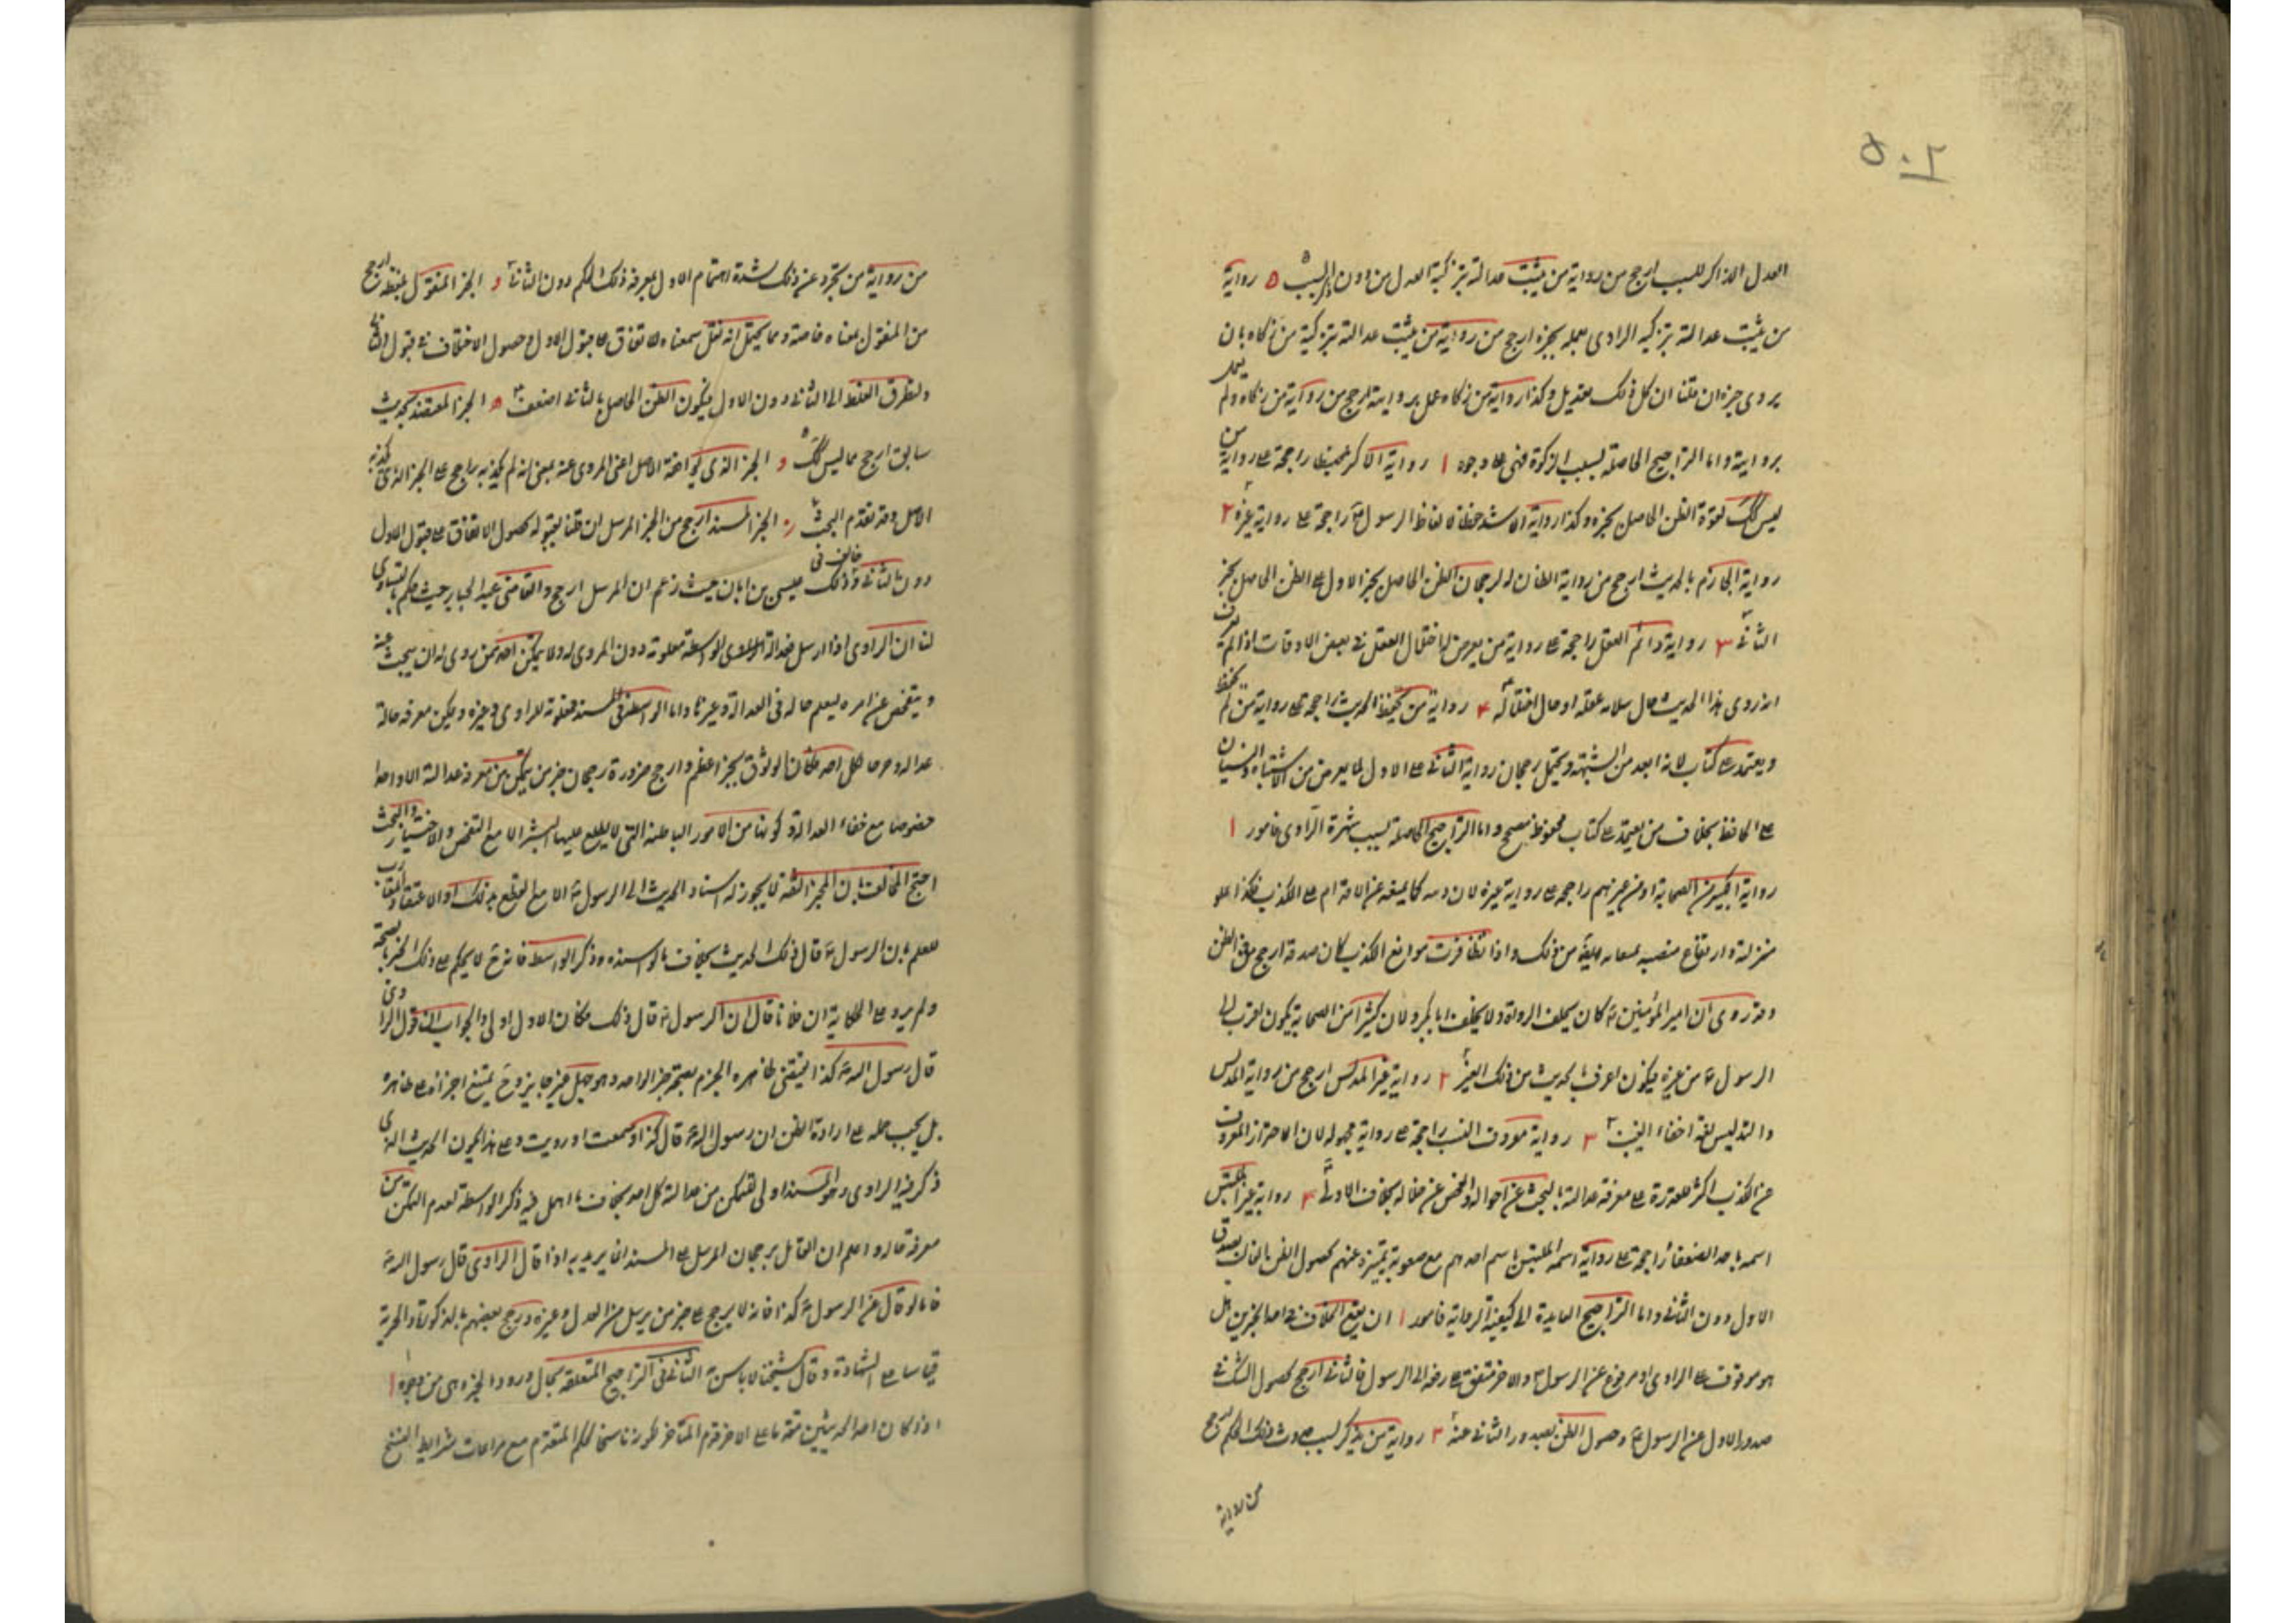 العدل الذاكر للسبب ارجح من رواية من يثبت عدالته بتزكية العدل من دون السبب ٥ رواية
من يثبت عدالته بتزكية الراوى بعمله بخبره ارجح من رواية من يثبت عدالته بتزكية من زكاه بان
يروى خبره ان قلنا ان كل ذلك تعديل وكذا رواية من زكاه عمل بروايته ارجح من رواية من زكاه ولم يعمل
بروايته واما التراجيح الحاصلة بسبب الذكوة فهى على وجوه ١ رواية الاكثر ضبطا راجحة على رواية من
ليس كك لقوة الظن الحاصل بخبره وكذا رواية الاشد حفظا لالفاظ الرسول ع راجحة على رواية غيره ٢
رواية الجازم بالحديث ارجح من رواية الظان له لرجحان الظن الحاصل بخبر الاول على الظن الحاصل بخبر
الثانى ٣ رواية دائم العقل راجحة على رواية من يعرض له اختلال العقل فى بعض الاوقات اذا لم يعرف
انه روى هذا الحديث حال سلامة عقله او حال اختلاله ٤ رواية من يحفظ الحديث راجحة على رواية من لم يحفظ
ويعتمد على كتاب لانه ابعد من الشبهة ويحتمل رجحان رواية الثانى على الاول لما يعرض من الاشتباه والنسيان
على الحافظ بخلاف من يعتمد على كتاب محفوظ مصحح واما التراجيح الحاصلة بسبب شهرة الراوى فامور ١
رواية الكبير من الصحابة او من غيرهم راجحة على رواية غيره لان دينه كما يمنعه عن الاقدام على الكذب فكذا علو
منزلته وارتفاع منصبه يمنعانه من ذلك واذا تظافرت موانع الكذب كان صدقه ارجح فى الظن
وقد روى ان امير المؤمنين ع كان يحلف الرواة ولا يحلف ابا بكر ولان كثيرا من الصحابة يكون اقرب الى
الرسول ع من غيره فيكون اعرف بالحديث من ذلك الغير ٢ رواية غير المدلس ارجح من رواية المدلس
والتدليس لغة اخفاء العيب ٣ رواية معروف النسب راجحة على رواية مجهوله لان احتراز المعروف
عن الكذب اكثر للقدرة على معرفة عدالته بالبحث عن احواله والفحص عن حاله بخلاف الاول ٤ رواية غير الملتبس
اسمه باحد الضعفاء راجحة على رواية اسمه الملتبس باسم احدهم مع صعوبة تمييزه عنهم لحصول الظن بالخالف بصدق
الاول دون الثانى واما التراجيح العايدة الى كيفية الرواية فامور ١ ان يقع الخلاف فى احد الخبرين هل
هو موقوف على الراوى او مرفوع عن الرسول ع والاخر متفق على رفعه الى الرسول فالثانى ارجح لحصول الشك فى
صدور الاول عن الرسول ع وحصول الظن بصدور الثانى عنه ٢ رواية من يذكر لسبب حدوث ذلك الحكم ارجح
من رواية
من رواية من تجرد عن ذلك لشدة اهتمام الاول بمعرفة ذلك الحكم دون الثانى د الخبر المنقول بلفظه ارجح
من المنقول بمعناه خاصة ومما يحتمل انه نقل بمعناه للاتفاق على قبول الاول وحصول الاختلاف فى قبول الثانى
ولتطرق الغلط الى الثانى دون الاول فيكون الظن الحاصل بالثانى اضعف ه الخبر المعتضد بحديث
سابق ارجح مما ليس كك و الخبر الذى لم يواخذه الاصل اعنى المروى عنه بمعنى انه لم يكذبه راجح على الخبر الذى كذبه
الاصل وقد تقدم البحث ز الخبر المسند ارجح من الخبر المرسل ان قلنا بقبوله لحصول الاتفاق على قبول الاول
دون الثانى وخالف فى ذلك عيسى بن ابان حيث زعم ان المرسل ارجح والقاضى عبد الجبار حيث حكم بالتساوى
لنا ان الراوى اذا ارسل فعدالة الواسطة معلومة له دون المروى له ولا يمكن احد ممن روى له ان يبحث عنه
ويتفحص عن امره ليعلم حاله فى العدالة وغيرها واما الواسطة فى المسند فمعلومة للراوى وغيره ويمكن معرفة حاله
عدالة وجرحا لكل احد فكان الوثوق بخبره اعظم وارجح ضرورة رجحان خبر من يتمكن من معرفة عدالته الا واحدا
خصوصا مع خفاء العدالة وكونها من الامور الباطنة التى لا يطلع عليها البشر الا مع التفحص والاختبار والبحث
احتج المخالف بان المخبر الثقة لا يجوز له اسناد الحديث الى الرسول ع الا مع القطع بذلك او الاعتقاد المقارب
للعلم بان الرسول ع قال ذلك الحديث بخلاف ما لو اسنده وذكر الواسطة فانه ح لا يحكم على ذلك الخبر بالصحة
ولم يرو على الحكاية ان فلانا قال ان الرسول ع قال ذلك فكان الاول اولى والجواب ان قول الراوى
قال رسول الله ع كذا يقتضى ظاهره الجزم بصحة خبر الواحد وهو جهل غير جايز وح يمتنع اجراؤه على ظاهره
بل يجب حمله على ارادة الظن ان رسول الله ع قال كذا او سمعت او رويت وعلى هذا يكون الحديث الذى
ذكر فيه الراوى وهو المسند اولى لتمكن من عدالة كل احد بخلاف ما اهمل فيه ذكر الواسطة لعدم التمكن من
معرفة حاله واعلم ان القائل برجحان المرسل على المسند انما يريد به اذا قال الراوى قال رسول الله ع
فاما لو قال عن الرسول ع كذا فانه لا يرجح على خبر من يرسل من العدل وغيره ورجح بعضهم بالذكورة والحرية
قياسا على الشهادة وقال شيخنا لا باس به الثانى فى التراجيح المتعلقة بحال ورود الخبر وهى من وجوه ١
اذا كان احد الحديثين متقدما على الاخر قدم المتاخر لكونه ناسخا لحكم المتقدم مع مراعات شرايط النسخ